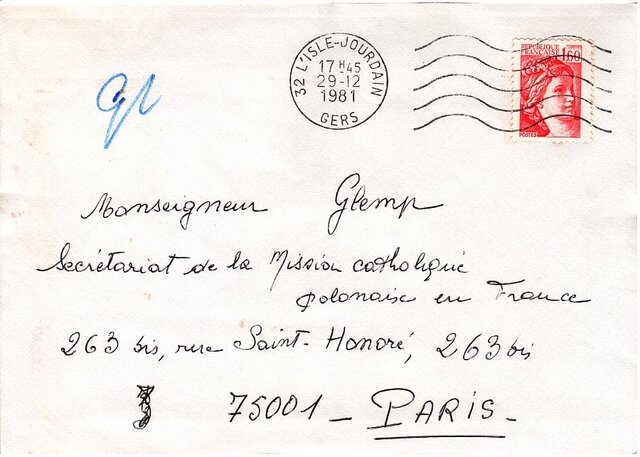 32 L'ISLE-JOURDAIN
17 H45
29-12
1981
GERS
REPUBLIQUE
FRANCAISE 1,60
POSTES
Monseigneur Glemp
Secrétariat de la Mission catholique
polonaise en France
263 bis, rue Saint-Honoré, 263 bis
75001 - PARIS -